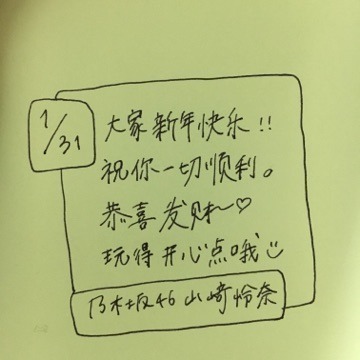 1/31
大家新年快乐!!
祝你一切顺利。
恭喜发财~♡
玩得开心点哦☺
乃木坂46 山崎怜奈